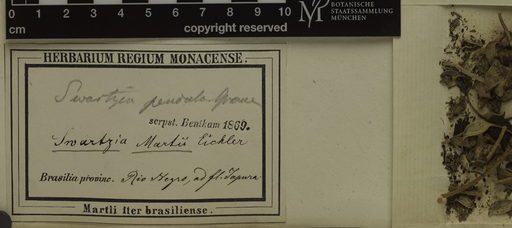 0 1 2 3 4 5 6 7 8 9 10
cm
copyright reserved
BOTANISCHE
STAATSSAMMLUNG
MÜNCHEN
HERBARIUM REGIUM MONACENSE.
Swartzia pendula Spruce
scrpst. Bentham 1869.
Swartzia Martii Eichler
Brasilia provinc. Rio Negro, ad fl. Japura
Martii Iter brasiliense.